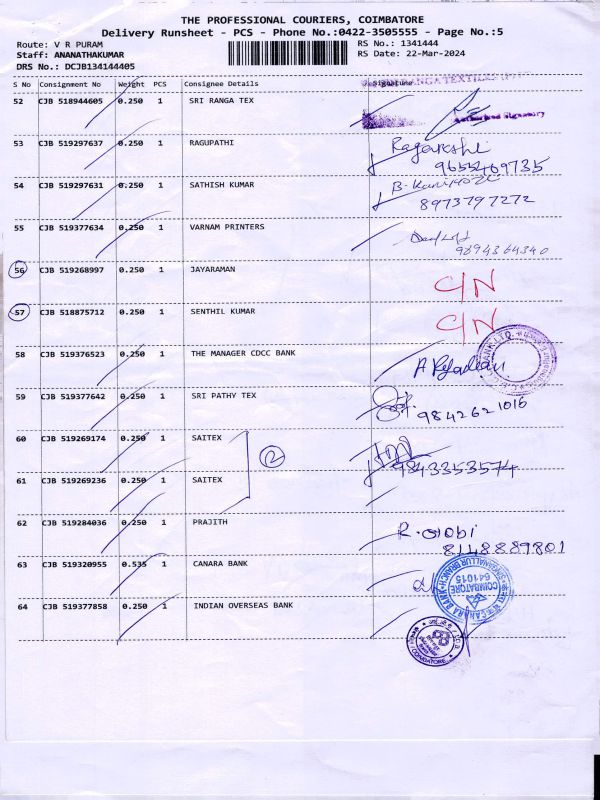 THE PROFESSIONAL COURIERS, COIMBATORE
Delivery Runsheet - PCS - Phone No.:0422-3505555 - Page No.:5
Route: V R PURAM
Staff: ANANATHAKUMAR
DRS No.: DCJB134144405
RS No.: 1341444
RS Date: 22-Mar-2024
S No Consignment No Weight PCS Consignee Details Signature
52 CJB 518944605 0.250 1 SRI RANGA TEX
Authorised Signatory
53 CJB 519297637 0.250 1 RAGUPATHI
9655469735
54 CJB 519297631 0.250 1 SATHISH KUMAR
8973797272
55 CJB 519377634 0.250 1 VARNAM PRINTERS
9894364340
56 CJB 519268997 0.250 1 JAYARAMAN C/N
57 CJB 518875712 0.250 1 SENTHIL KUMAR C/N
58 CJB 519376523 0.250 1 THE MANAGER CDCC BANK
59 CJB 519377642 0.250 1 SRI PATHY TEX
9842621016
60 CJB 519269174 0.250 1 SAITEX
2
9843353574
61 CJB 519269236 0.250 1 SAITEX
62 CJB 519284036 0.250 1 PRAJITH R. Gobi
8148889801
63 CJB 519320955 0.535 1 CANARA BANK
COIMBATORE
641015
64 CJB 519377858 0.250 1 INDIAN OVERSEAS BANK
COIMBATORE